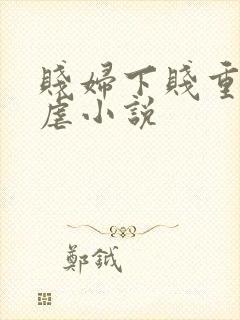 賤婦下賤重
虐小説
鄭鉞